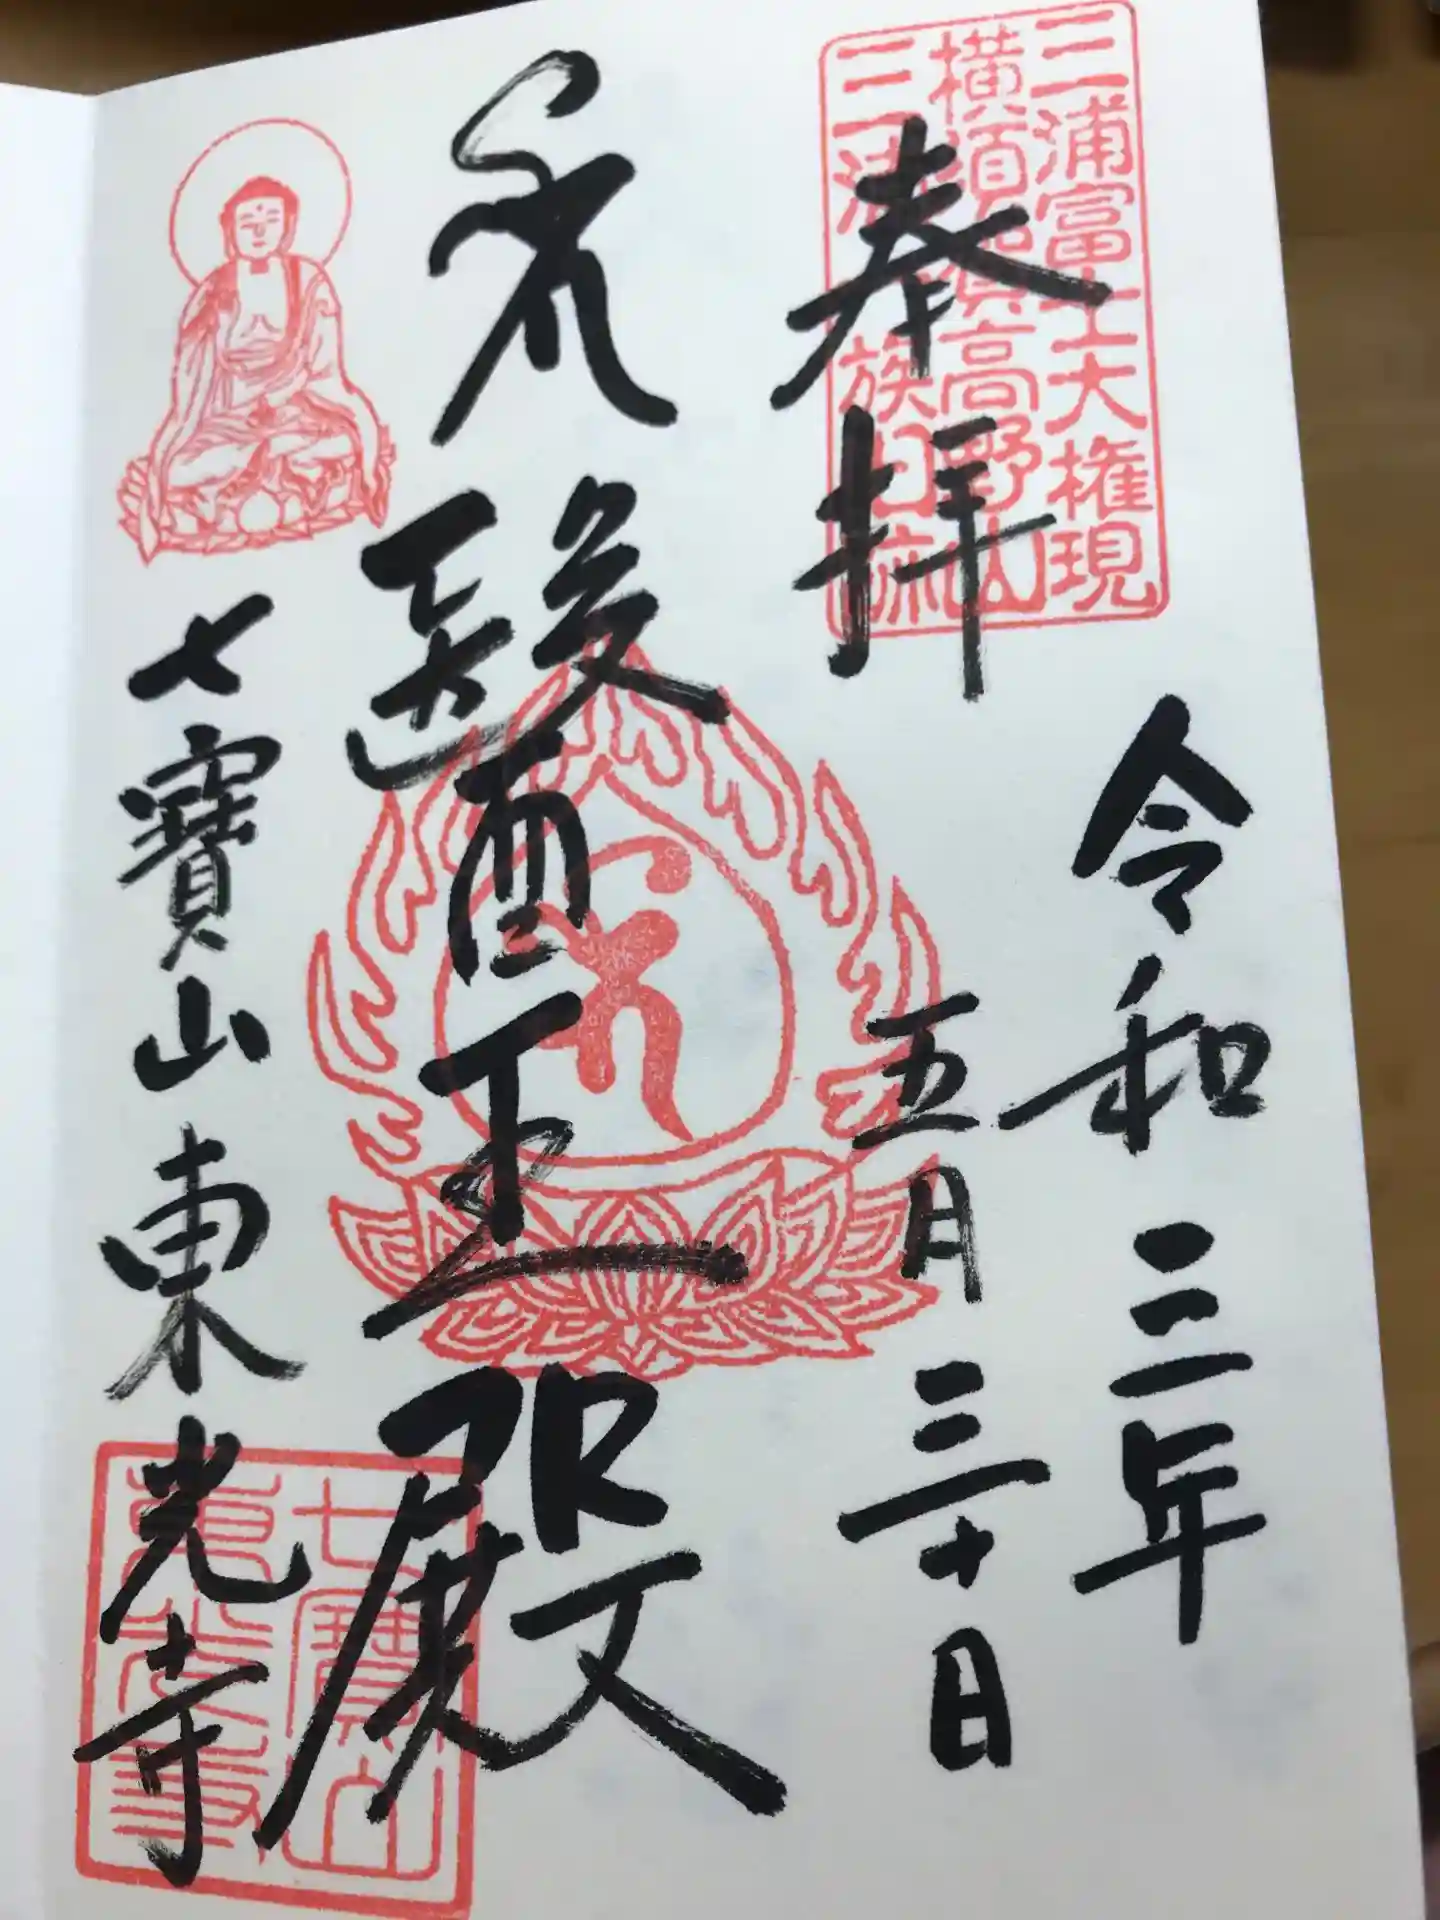 三浦富士大権現
横須賀高野山
三浦一族由緒
奉拝
令和三年
五月三十日
醫王殿
七寶山東光寺
七寶山
東光寺